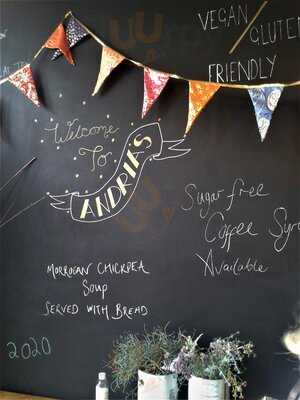 VEGAN
GLUTEN
FRIENDLY
Welcome
To
ANDRIA'S
Sugar free
Coffee
Available
MORROCAN CHICKPEA
SOUP
SERVED WITH BREAD
2020